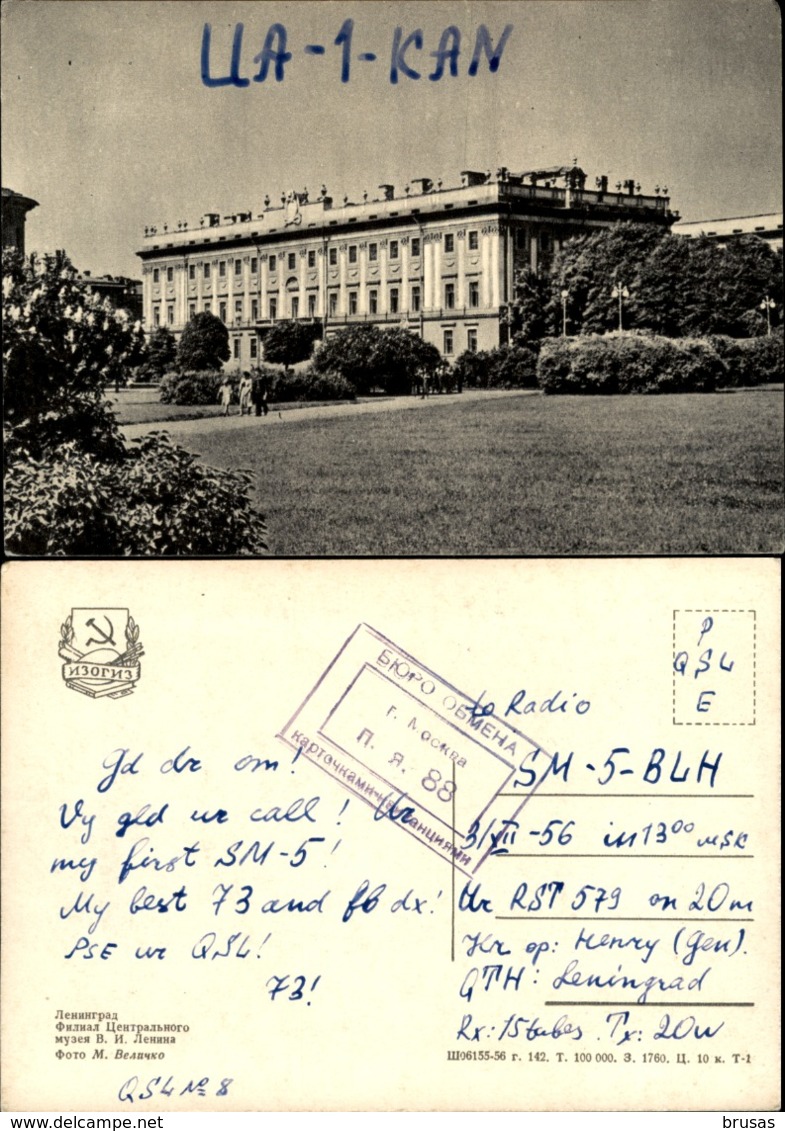 UA-1-KAN
ИЗОГИЗ
БЮРО ОБМЕНА
г. Москва
п. я. 88
P
QSL
E
to Radio
SM-5-BLH
3/XII-56 in 13⁰⁰ MSK
Ur RST 579 on 20m
Hr op: Henry (Gen).
QTH: Leningrad
Rx: 15 tubes. Tx: 20w
Gd dr om!
Vy gld ur call! Ur
my first SM-5!
My best 73 and fb dx!
PSE ur QSL!
73!
Ленинград
Филиал Центрального
музея В. И. Ленина
Фото М. Величко
Ш06155-56 г. 142. Т. 100 000. З. 1760. Ц. 10 к. Т-1
QSL № 8
brusas